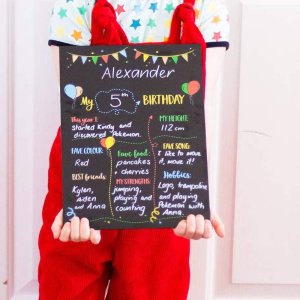 Alexander
My 5th BIRTHDAY
This year I
started Kindy and
discovered Pokemon.
MY HEIGHT:
112 cm
FAVE COLOUR:
Red
Fave food:
pancakes
+ cherries
FAVE SONG:
I like to move
it, move it!
BEST friends:
Kylen,
Aiden
and Anna
MY STRENGTHS:
jumping,
playing and
counting
Hobbies:
Lego, trampoline
and playing
Pokemon with
Anna